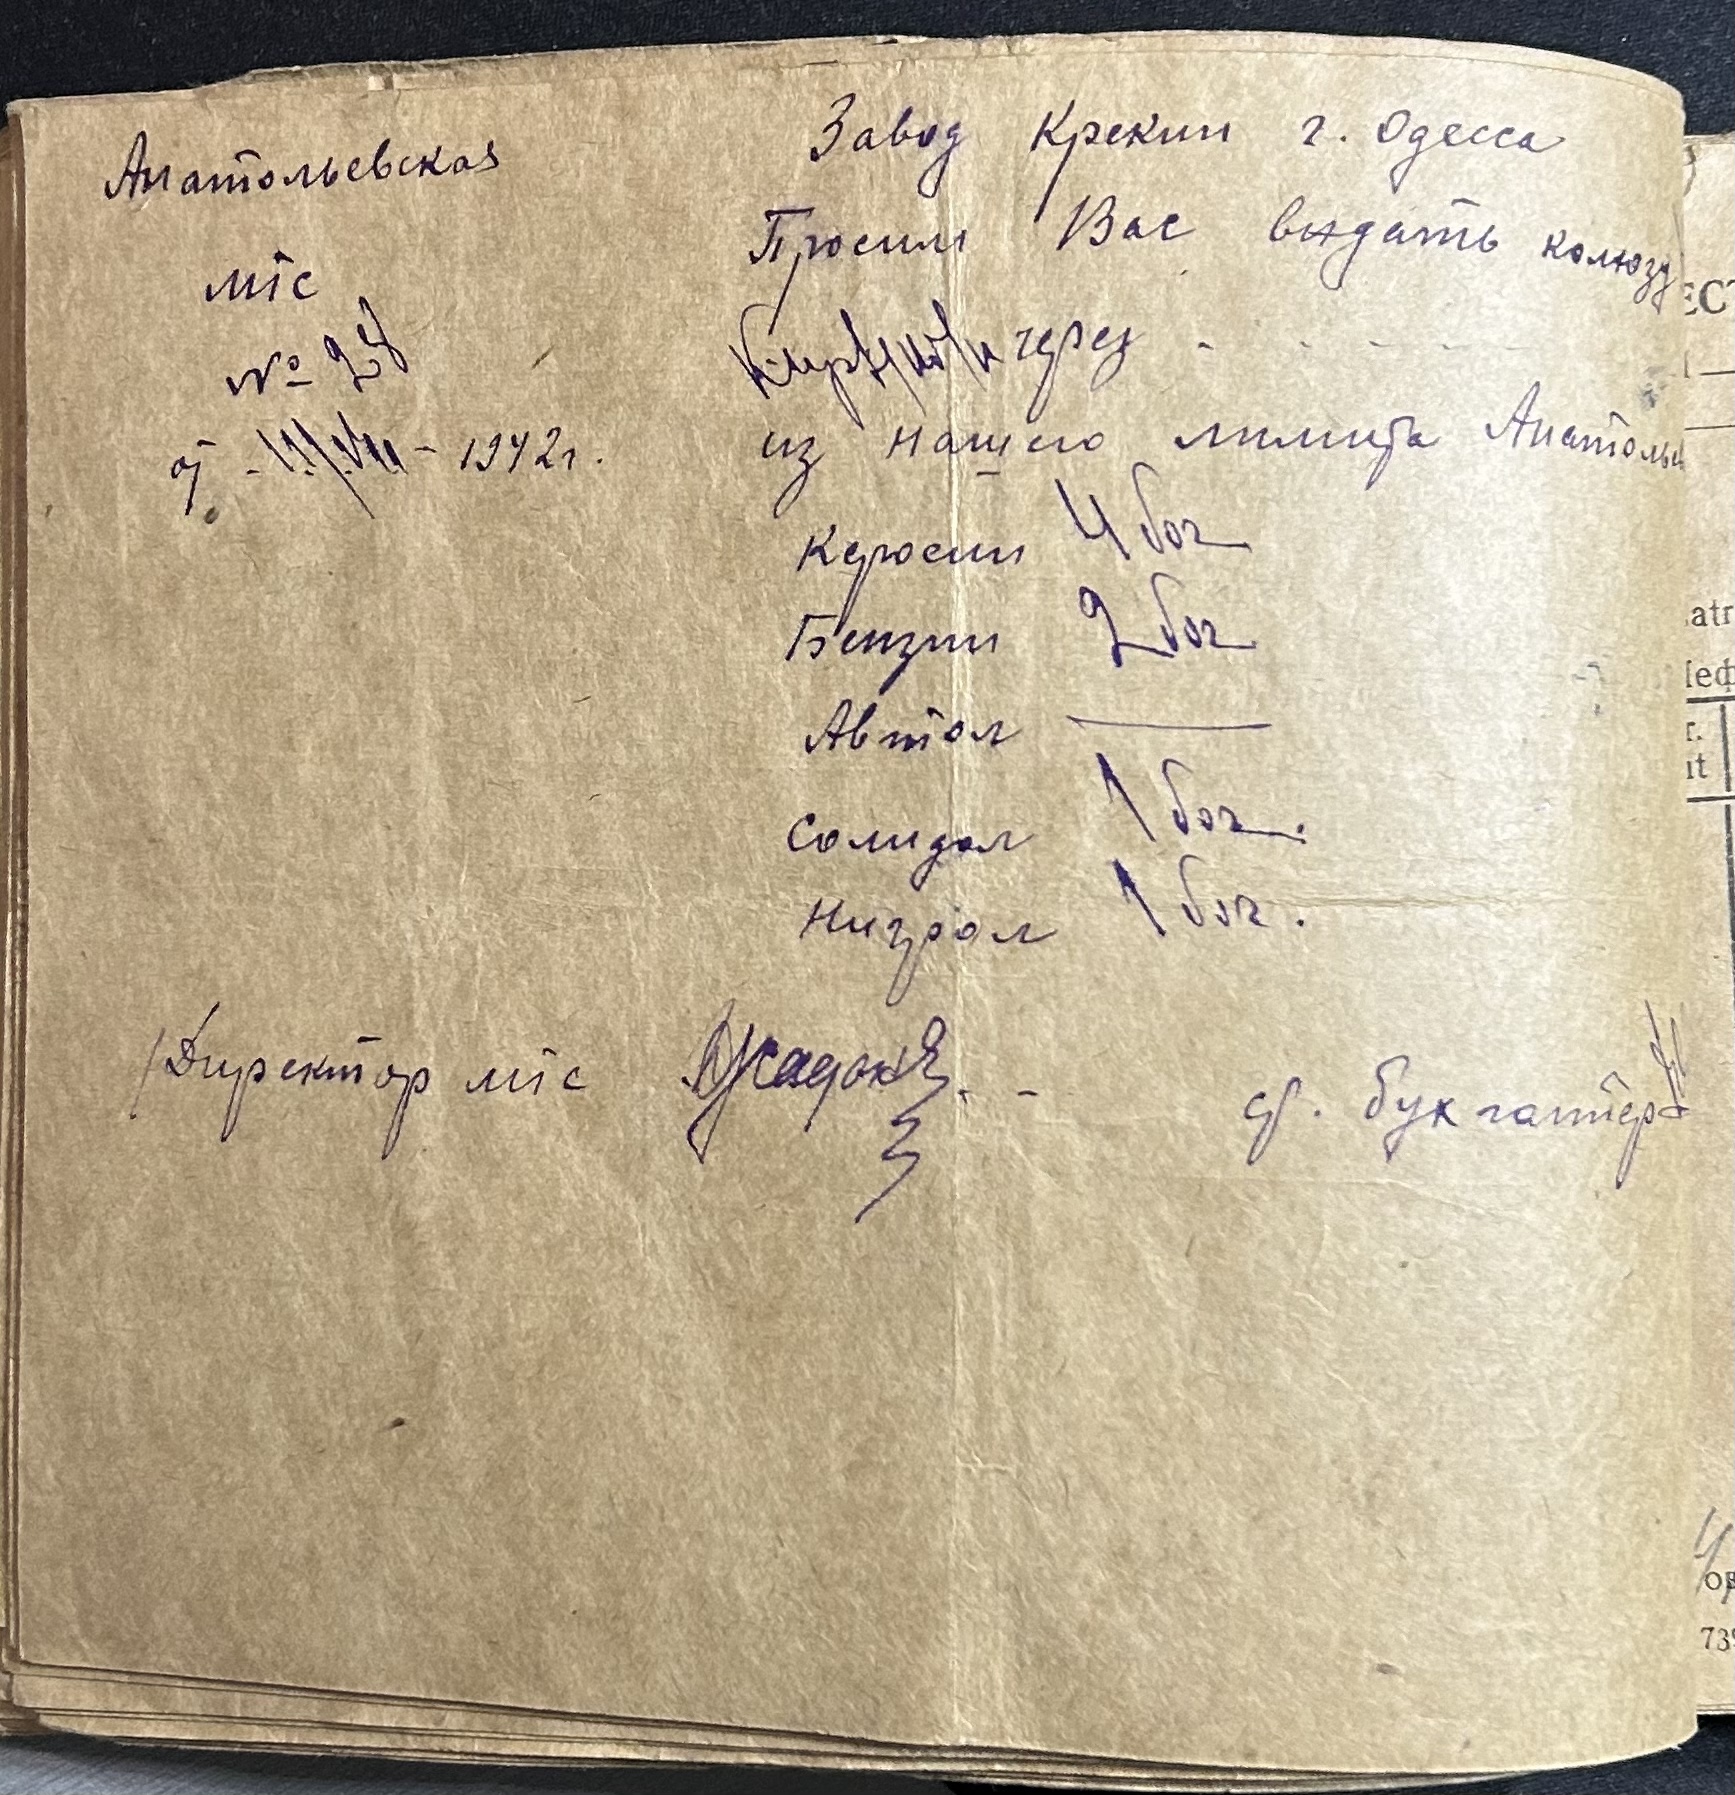 Анатольевская
мтс
№ 28
от 1942 г.
Завод Крекин г. Одесса
Просим Вас выдать колхозу
через - - - - - -
из нашего лимита Анатольев
Керосин 4 боч
Бензин 2 боч
Автол —
Солидол 1 боч.
Нигрол 1 боч.
Директор мтс
ст. бухгалтер
ЕСТ
atr
led
r.
it
ор
73